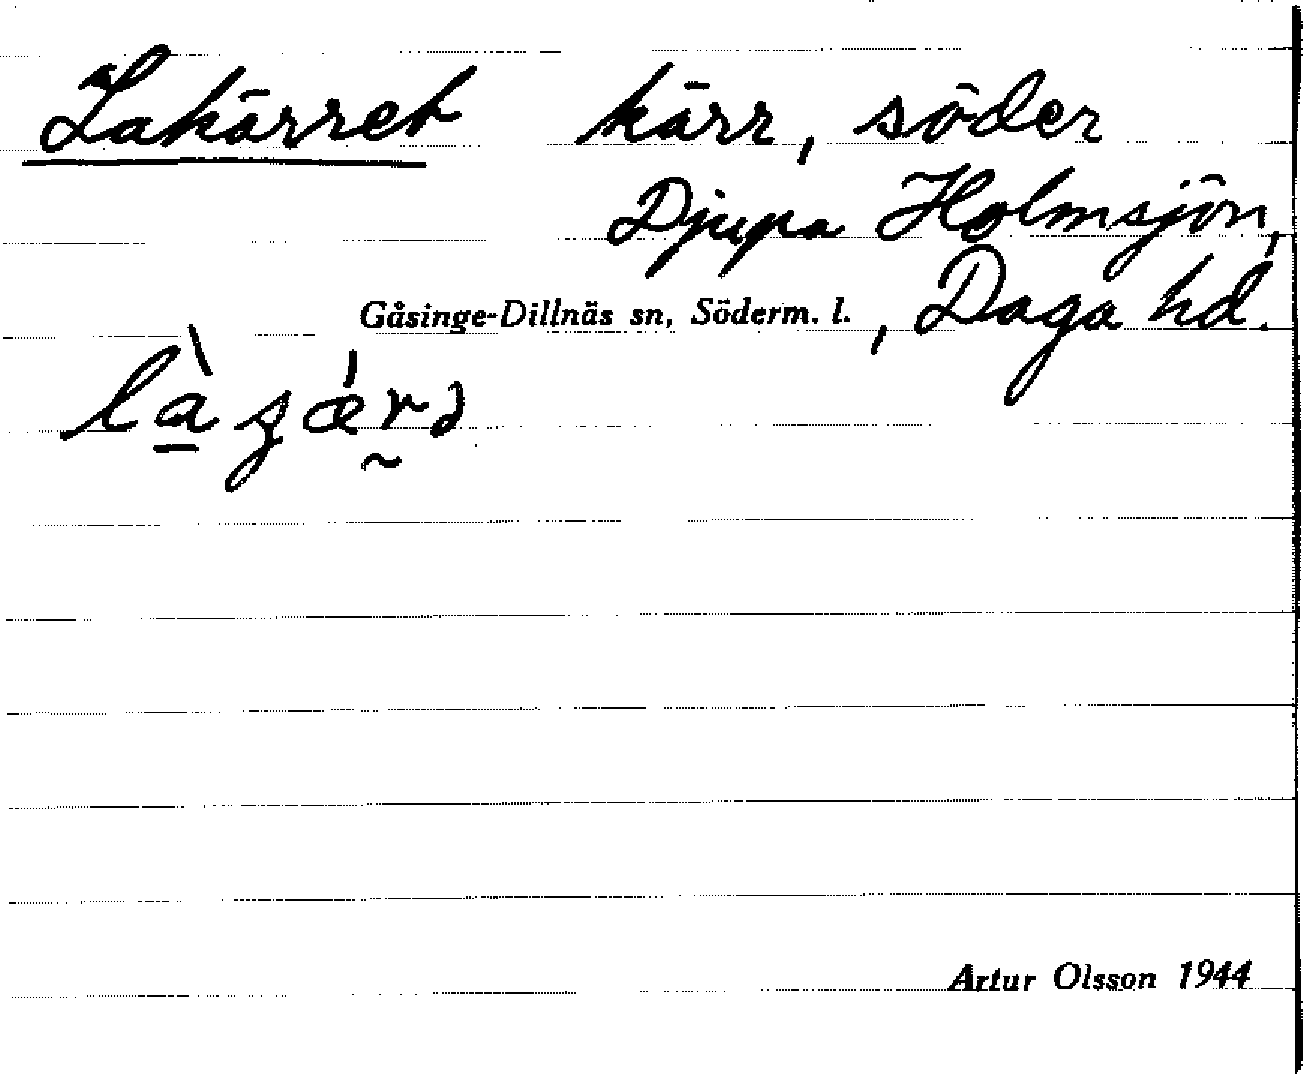 Lakärret kärr, söder
Djupa Holmsjön,
Gåsinge-Dillnäs sn, Söderm. l., Daga hd.
Artur Olsson 1944